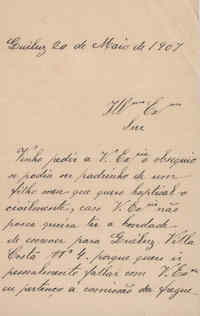 Queluz 20 de Maio de 1907
Illmo Exmo
Snr
Venho pedir a V. Exia o obsequio
se podia ser padrinho de um
filho meu que quero baptisal-o
civilmente, caso V. Exia não
possa queira ter a bondade
de escrever para Queluz Villa
Costa Nº 4. porque quero ir
pessoalmente fallar com V. Exia
eu pertenço a comissão da fregue-